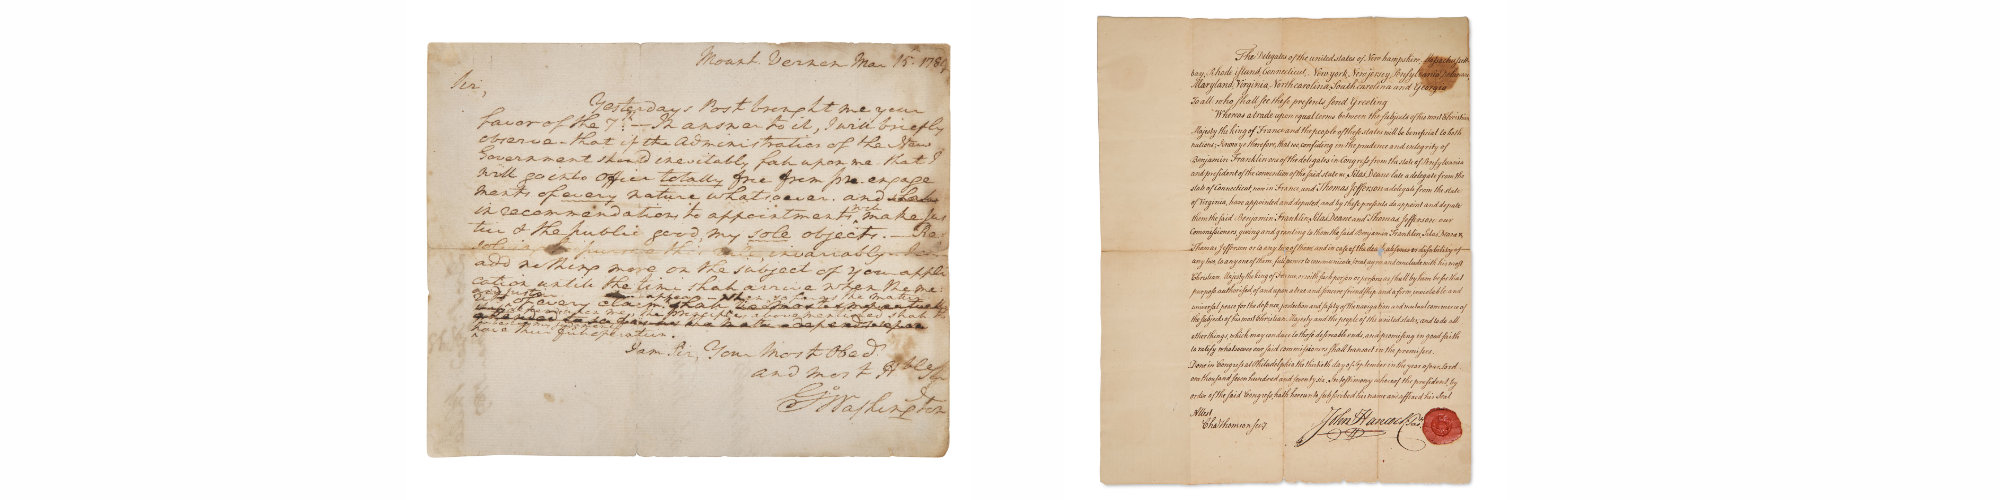 Mount Vernon Mar 15th 1789
Sir,
Yesterdays Post brought me your
favor of the 7th.— In answer to it, I will briefly
observe that if the Administration of the New
Government should inevitably fall upon me that I
will go into office totally free from pre-engage
ments of every nature whatsoever. and
in recommendations to appointments will make jus
tice & the public good, my sole objects. — Re
invariably
add nothing more on the subject of your appli
cation until the time shall arrive when the me
of every claim shall
upon me, the principles abovementioned shall
have their full operation.
I am Sir, Your Most Obed
and most Hble Ser
Go Washington
The Delegates of the united states of New hampshire, Massachusetts
bay, Rhode island, Connecticut, New york, New jersey, Pensylvania, Delaware,
Maryland, Virginia, North carolina, South carolina and Georgia
To all who shall see these presents send Greeting
Whereas a trade upon equal terms between the subjects of his most Christian
Majesty the king of France and the people of these states will be beneficial to both
nations; Know ye therefore, that we, confiding in the prudence and integrity of
Benjamin Franklin one of the delegates in Congress from the state of Pensylvania
and president of the convention of the said state &c, Silas Deane late a delegate from the
state of Connecticut, now in France, and Thomas Jefferson a delegate from the state
of Virginia, have appointed and deputed, and by these presents do appoint and depute
them the said Benjamin Franklin, Silas Deane and Thomas Jefferson our
Commissioners, giving and granting to them the said Benjamin Franklin, Silas Deane &
Thomas Jefferson or to any two of them and in case of the death, absence or disability of
any two, to any one of them, full power to communicate, treat, agree and conclude with his most
Christian Majesty the king of France, or with such person or persons as shall by him be for that
purpose authorised, of and upon a true and sincere friendship, and a firm, inviolable and
universal peace for the defence, protection and safety of the navigation and mutual commerce of
the subjects of his most Christian Majesty and the people of the united states, and to do all
other things, which may conduce to those desireable ends, and promising in good faith
to ratify whatsoever our said commissioners shall transact in the premises.
Done in Congress at Philadelphia the thirtieth day of September in the year of our Lord
one thousand seven hundred and seventy six. In testimony whereof the president, by
order of the said Congress, hath hereunto subscribed his name and affixed his seal
Attest
Cha Thomson secy.
John Hancock